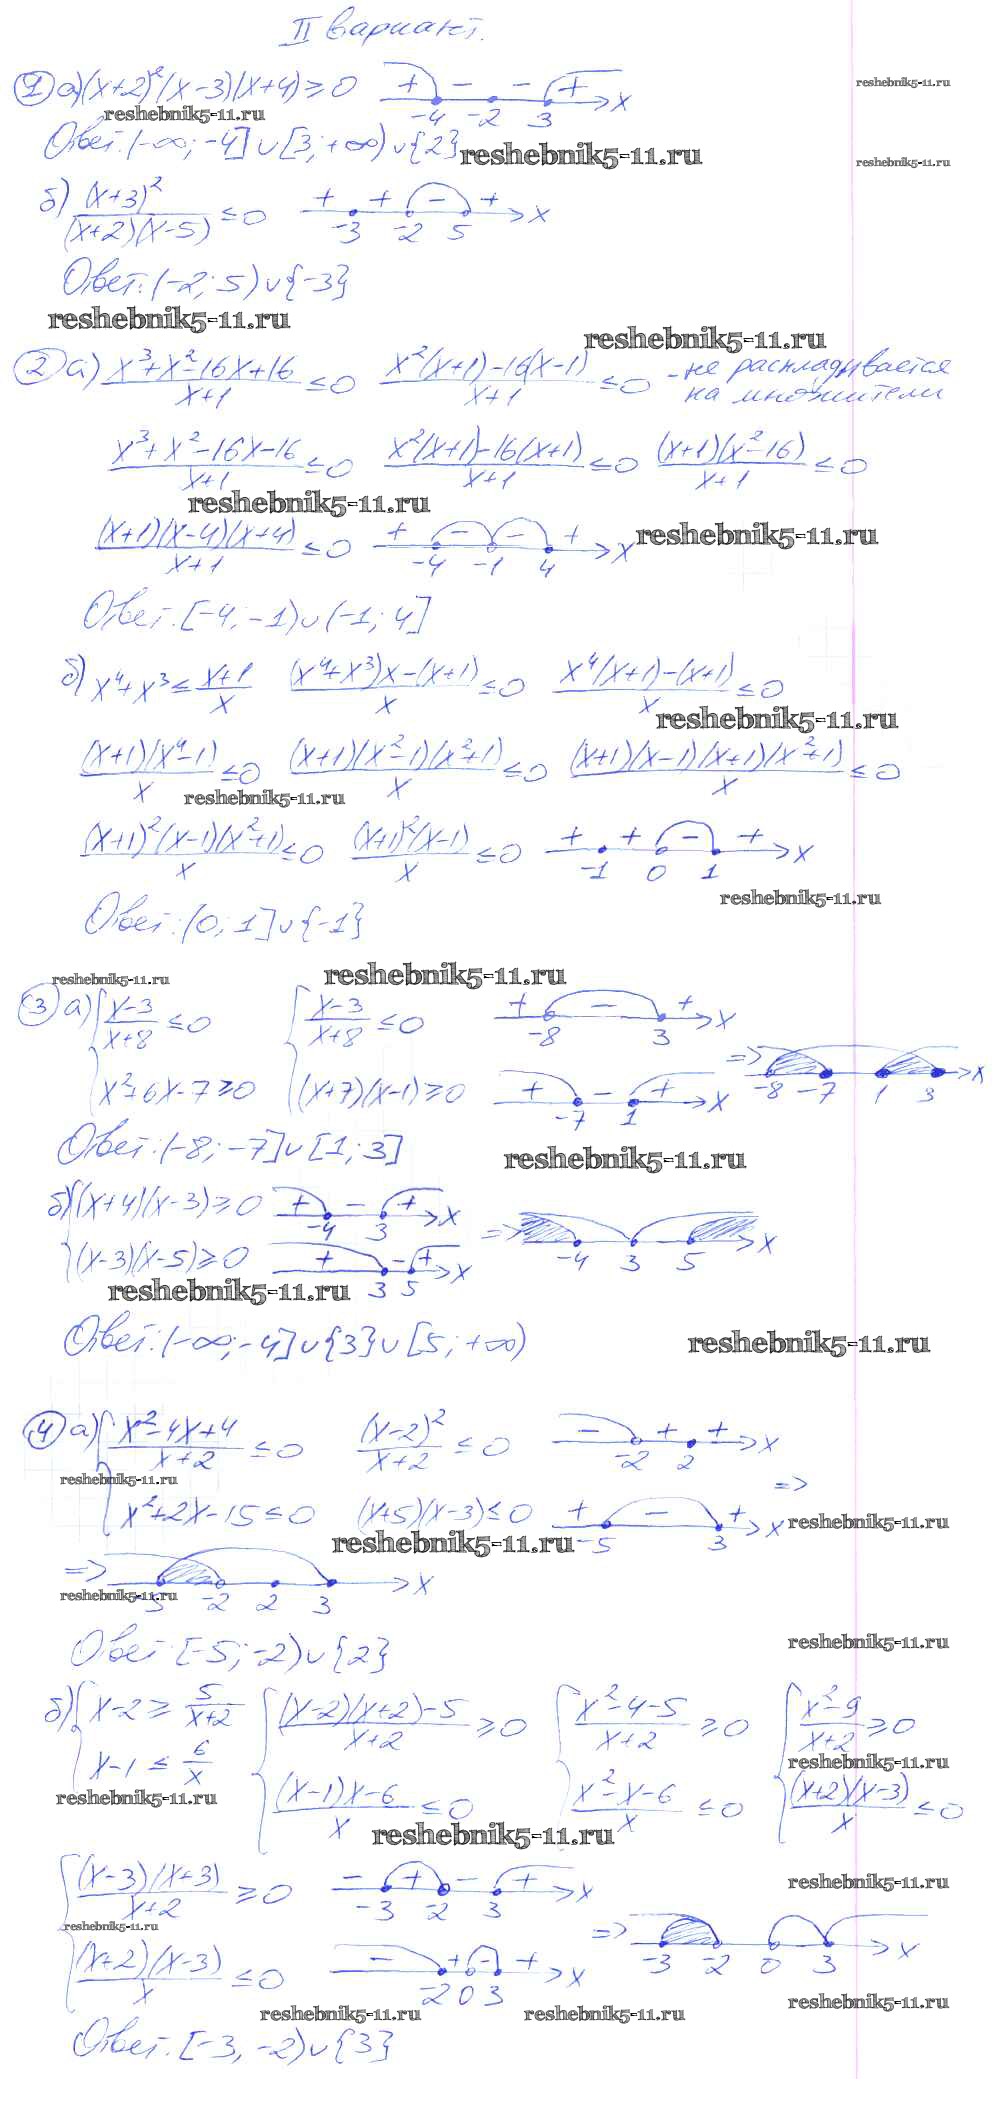 II вариант.
① а) (x+2)²(x-3)(x+4)≥0 + - - + x
-4 -2 3
reshebnik5-11.ru
reshebnik5-11.ru
Ответ: (-∞; -4]∪[3; +∞)∪{2}
reshebnik5-11.ru
reshebnik5-11.ru
б) (x+3)²/((x+2)(x-5)) ≤0 + + - + x
-3 -2 5
Ответ: (-2; 5)∪{-3}
reshebnik5-11.ru
reshebnik5-11.ru
② а) (x³+x²-16x+16)/(x+1) ≤0 (x²(x+1)-16(x-1))/(x+1) ≤0 - не раскладывается
на множители
(x³+x²-16x-16)/(x+1) ≤0 (x²(x+1)-16(x+1))/(x+1) ≤0 ((x+1)(x²-16))/(x+1) ≤0
reshebnik5-11.ru
((x+1)(x-4)(x+4))/(x+1) ≤0 + - - + x
-4 -1 4
reshebnik5-11.ru
Ответ: [-4; -1)∪(-1; 4]
б) x⁴+x³≤(x+1)/x ((x⁴+x³)x-(x+1))/x ≤0 (x⁴(x+1)-(x+1))/x ≤0
reshebnik5-11.ru
((x+1)(x⁴-1))/x ≤0 ((x+1)(x²-1)(x²+1))/x ≤0 ((x+1)(x-1)(x+1)(x²+1))/x ≤0
reshebnik5-11.ru
((x+1)²(x-1)(x²+1))/x ≤0 ((x+1)²(x-1))/x ≤0 + + - + x
-1 0 1
reshebnik5-11.ru
Ответ: (0; 1]∪{-1}
reshebnik5-11.ru
reshebnik5-11.ru
③ а) { (x-3)/(x+8) ≤0 { (x-3)/(x+8) ≤0 + - + x
-8 3
x²+6x-7≥0 (x+7)(x-1)≥0 + - + x
-7 1
=> -8 -7 1 3 x
Ответ: (-8; -7]∪[1; 3]
reshebnik5-11.ru
б) { (x+4)(x-3)≥0 + - + x
-4 3
(x-3)(x-5)≥0 + - + x
3 5
=> -4 3 5 x
reshebnik5-11.ru
Ответ: (-∞; -4]∪{3}∪[5; +∞)
reshebnik5-11.ru
④ а) { (x²-4x+4)/(x+2) ≤0 (x-2)²/(x+2) ≤0 - + + x
-2 2
reshebnik5-11.ru
=>
x²+2x-15≤0 (x+5)(x-3)≤0 + - + x
-5 3
reshebnik5-11.ru
reshebnik5-11.ru
=> x
5 -2 2 3
reshebnik5-11.ru
Ответ: [-5; -2)∪{2}
reshebnik5-11.ru
б) { x-2 ≥ 5/(x+2) { ((x-2)(x+2)-5)/(x+2) ≥0 { (x²-4-5)/(x+2) ≥0 { (x²-9)/(x+2) ≥0
reshebnik5-11.ru
x-1 ≤ 6/x ((x-1)x-6)/x ≤0 (x²-x-6)/x ≤0 ((x+2)(x-3))/x ≤0
reshebnik5-11.ru
reshebnik5-11.ru
{ ((x-3)(x+3))/(x+2) ≥0 - + - + x
-3 -2 3
reshebnik5-11.ru
reshebnik5-11.ru
((x+2)(x-3))/x ≤0 - + - + x
-2 0 3
=> -3 -2 0 3 x
reshebnik5-11.ru
reshebnik5-11.ru
reshebnik5-11.ru
Ответ: [-3, -2)∪{3}